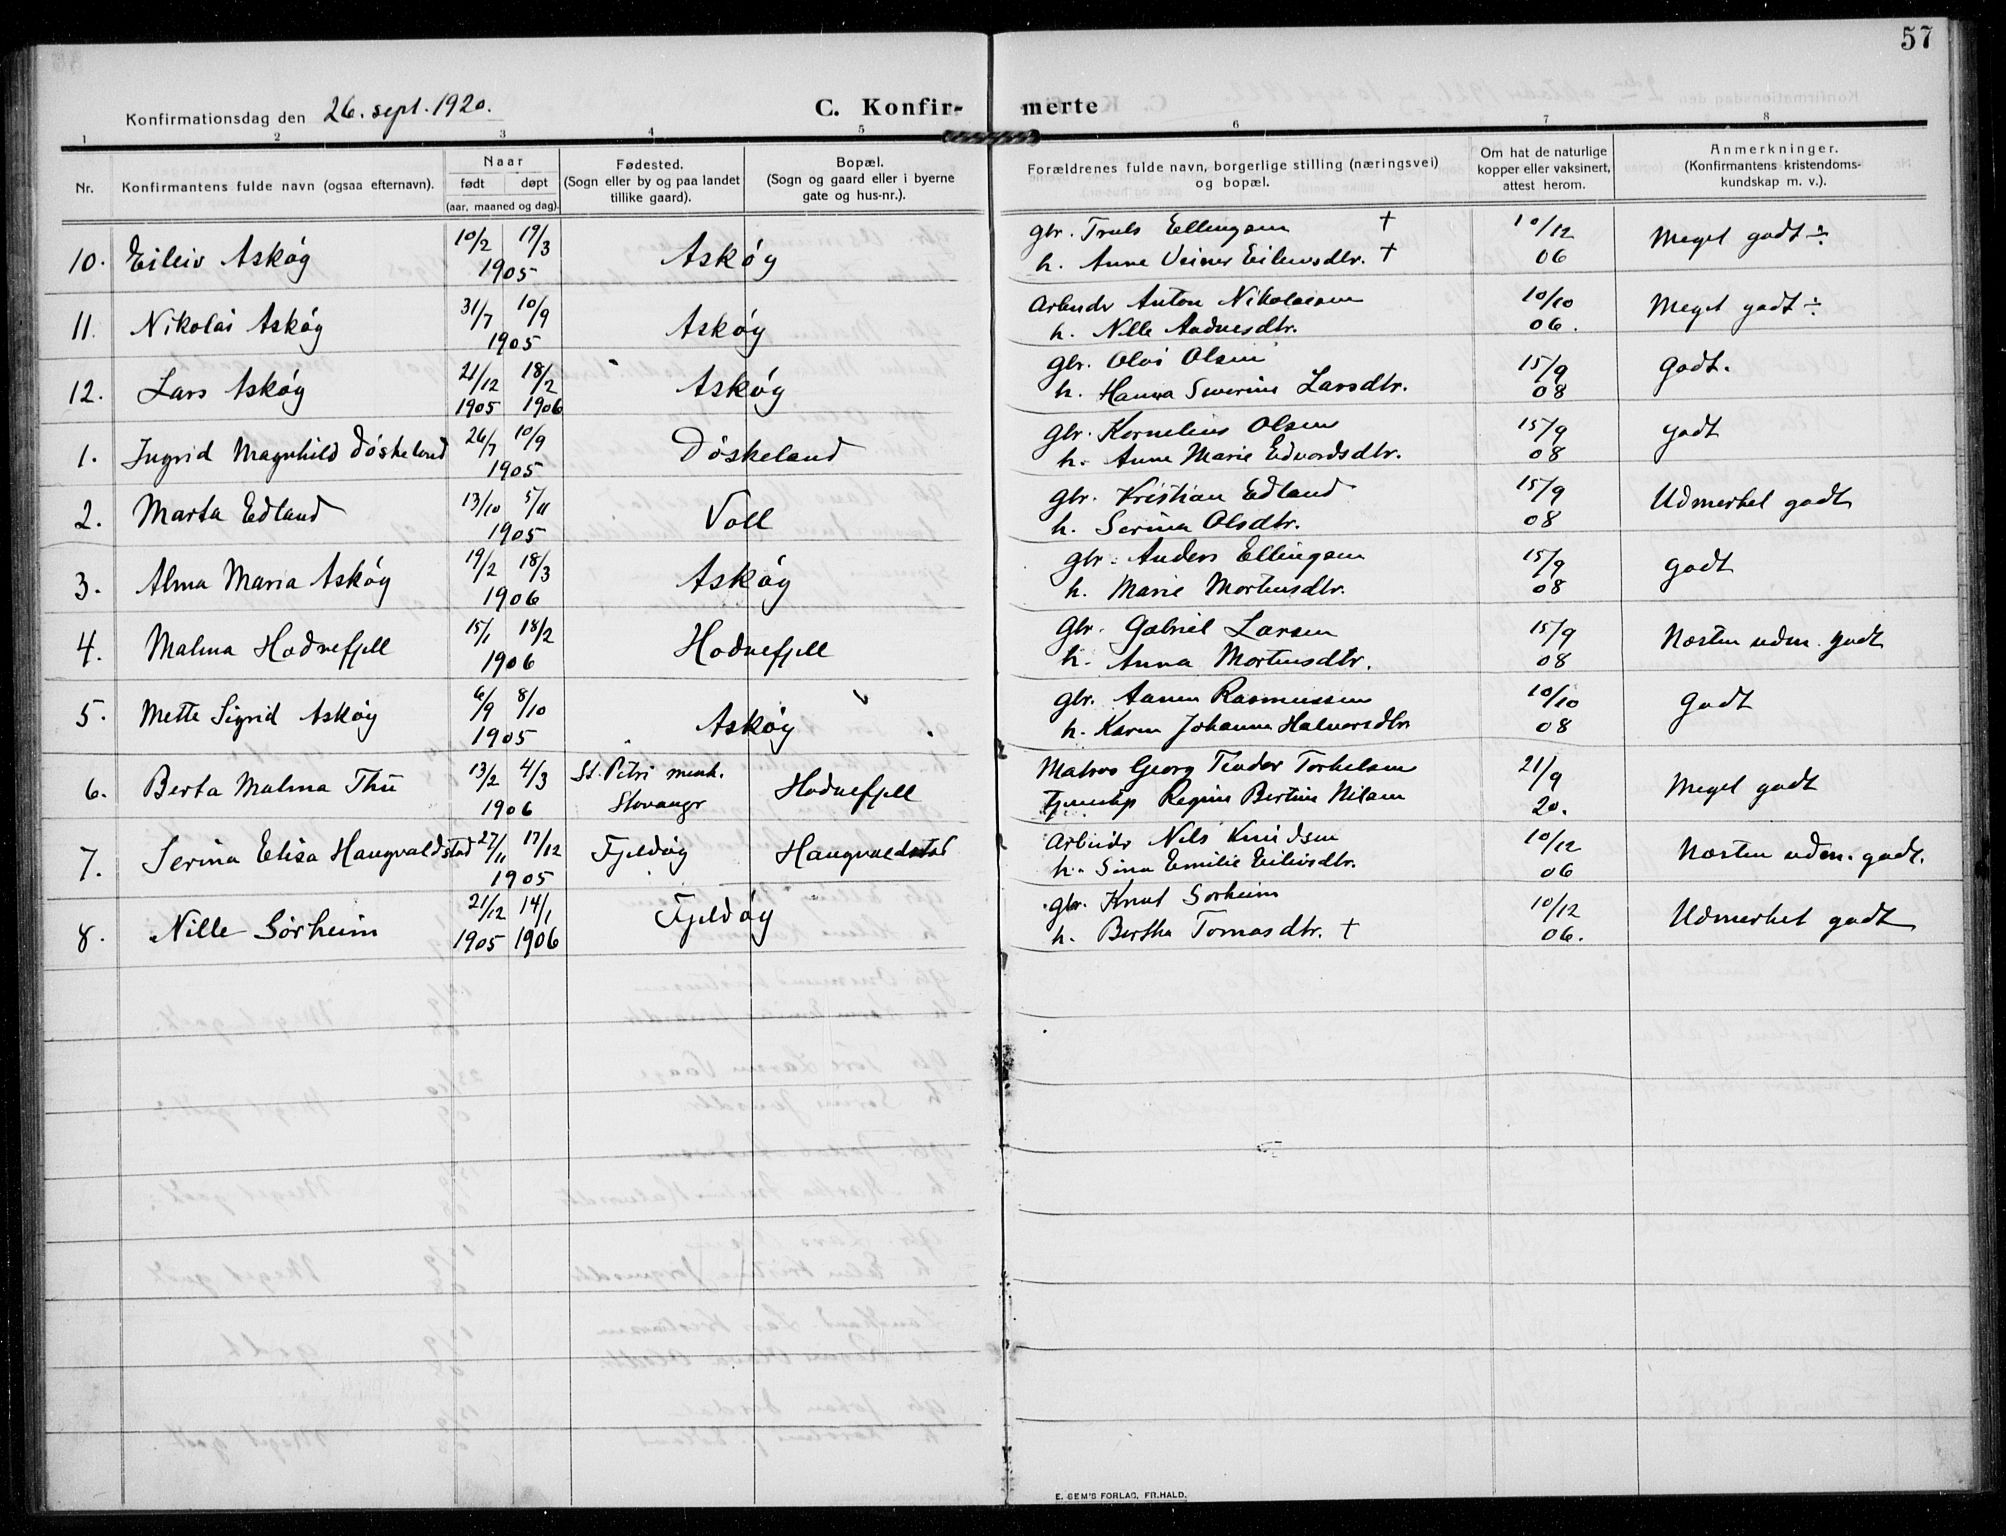 57
Konfirmationsdag den 26. sept. 1920.
C. Konfir- merte
1 2 3 4 5 6 7 8
Nr. Konfirmantens fulde navn (ogsaa efternavn). Naar født døpt (aar, maaned og dag). Fødested. (Sogn eller by og paa landet tillike gaard). Bopæl. (Sogn og gaard eller i byerne gate og hus-nr.). Forældrenes fulde navn, borgerlige stilling (næringsvei) og bopæl. Om hat de naturlige kopper eller vaksinert, attest herom. Anmerkninger. (Konfirmantens kristendoms- kundskap m. v.).
10. Eileiv Askøy 10/2 19/3 1905 Askøy gbr. Truls Ellingsen † h. Anne Eilevsdtr. † 10/12 06 Meget godt ÷
11. Nikolai Askøy 31/7 10/9 1905 Askøy Arbeider Anton Nikolaisen h. Nille Aadnesdtr. 10/10 06. Meget godt ÷
12. Lars Askøy 21/12 1905 18/2 1906 Askøy gbr. Olai Olsen h. Hanna Severine Larsdtr. 15/9 08 Godt.
1. Ingrid Magnhild Døskeland 26/7 10/9 1905 Døskeland gbr. Kornelius Olsen h. Anne Marie Edvardsdtr. 15/9 08 godt
2. Marta Edland 13/10 5/11 1905 Voll gbr. Kristian Edland h. Serina Olsdtr. 15/9 08 Udmerket godt
3. Alma Maria Askøy 19/2 18/3 1906 Askøy gbr. Anders Ellingsen h. Marie Mortensdtr. 15/9 08 godt
4. Malena Hodnefjell 15/1 18/2 1906 Hodnefjell Gbr. Gabriel Larsen h. Anna Mortensdtr. 15/9 08 Næsten udm. godt
5. Mette Sigrid Askøy 6/9 8/10 1905 Askøy gbr. Aanen Rasmussen h. Karen Johanne Halvorsdtr 10/10 08 Godt
6. Berta Malena Thu 13/2 4/3 1906 St. Petri menh. Stavanger Hodnefjell Matros Georg Teodor Torkelsen Regine Bertine Nilsen 21/9 20. Meget godt
7. Serina Elisa Haugvaldstad 27/11 17/12 1905 Fjeldøy Haugvaldstad Arbeider Nils Knudsen h. Sina Emilie Eilevsdtr. 10/12 06 Næsten udm. godt.
8. Nille Sørheim 21/12 1905 14/1 1906 Fjeldøy gbr. Knut Sørheim h. Bertha Tomasdtr. † 10/12 06. Udmerket godt
E. SEM'S FORLAG, FR.HALD.